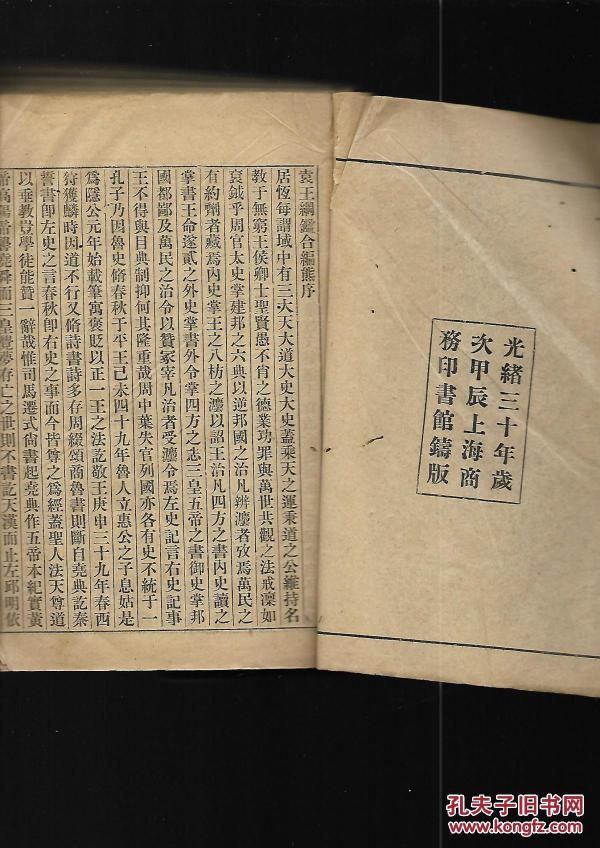 光緒三十年歲
次甲辰上海商
務印書館鑄版
袁王綱鑑合編熊序
居恆每謂域中有三大天大道大史大史蓋乘天之運秉道之公維持名
教于無窮王侯卿士聖賢愚不肖之德業功罪與萬世共觀之法戒凜如
袞鉞乎周官太史掌建邦之六典以逆邦國之治凡辨灋者攷焉萬民之
有約劑者藏焉內史掌王之八枋之灋以詔王治凡四方之書內史讀之
掌書王命遂貳之外史掌書外令掌四方之志三皇五帝之書御史掌邦
國都鄙及萬民之治令以贊冢宰凡治者受灋令焉左史記言右史記事
王不得與目典制抑何其隆重哉周中葉失官列國亦各有史不統于一
孔子乃因魯史脩春秋于平王己未四十九年魯人立惠公之子息姑是
為隱公元年始載筆寓褒貶以正一王之法訖敬王庚申三十九年春西
狩獲麟時因道不行又脩詩書詩多存周綴頌商魯書則斷自堯典訖秦
誓書卽左史之言春秋卽右史之事而今皆尊之為經蓋聖人法天尊道
以垂教豈學徒能贊一辭哉惟司馬遷式尙書起堯典作五帝本紀實黃
帝高陽帝嚳堯舜而三皇覺夢存亡之世則不書訖天漢而止左邱明依
孔夫子旧书网
www.kongfz.com